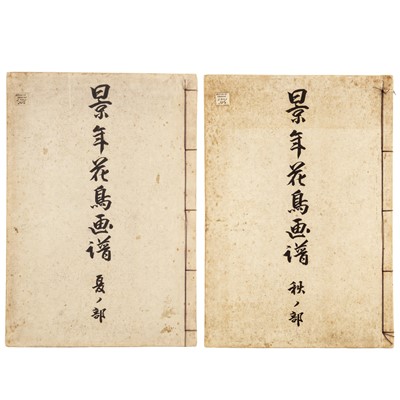 景年花鳥画譜
夏ノ部
景年花鳥画譜
秋ノ部